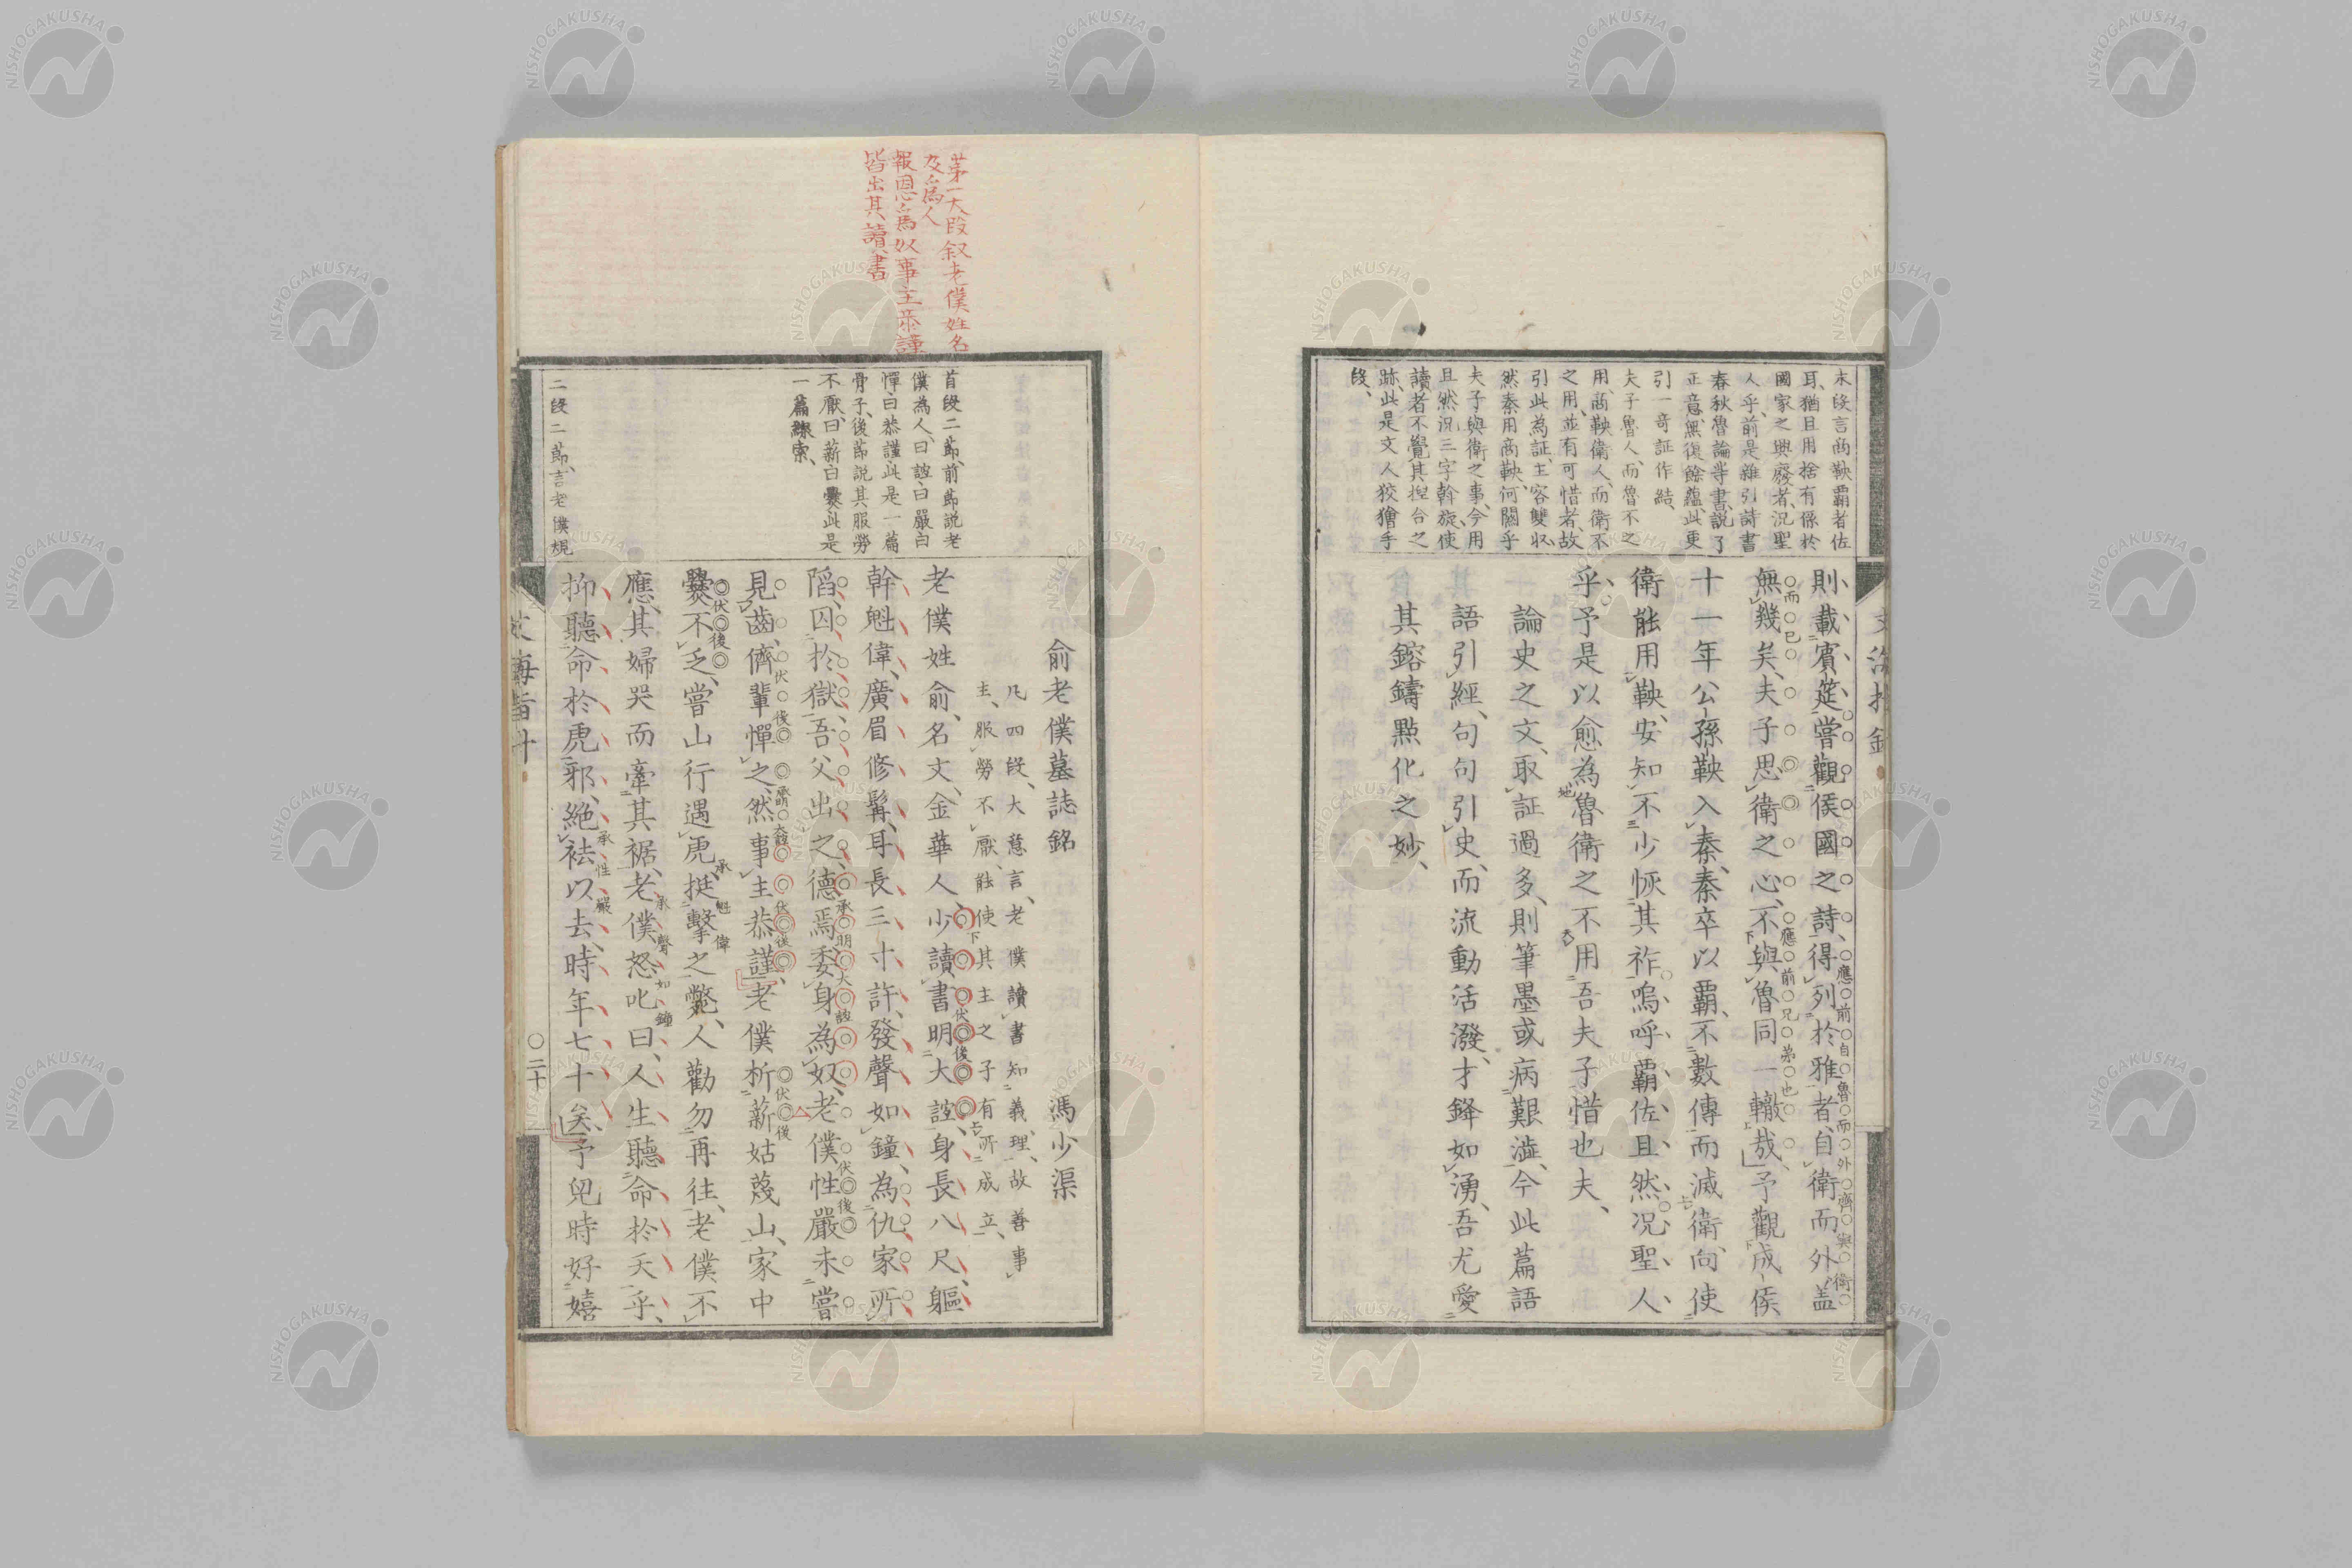 末段言商鞅覇者佐
耳、猶且用捨有係於
國家之興廢者、況聖
人乎、前是雜引詩書
春秋魯論等書、說了
正意、無復餘蘊、此更
引一奇証作結、
夫子魯人、而魯不之
用、商鞅衛人、而衛不
之用、並有可惜者、故
引此為証、主容雙収、
然秦用商鞅、何關乎
夫子與衛之事、今用
且然況三字幹旋、使
讀者不覺其捏合之
跡、此是文人狡獪手
段、
則載賓筵、嘗觀侯國之詩、得列於雅者、自衛而外、蓋
無幾矣、夫子思衛之心、不與魯同一轍哉、予觀成侯
十一年公孫鞅入秦、秦卒以覇、不數傳而滅衛、向使
衛能用鞅、安知不少恢其祚、嗚呼、覇佐且然、况聖人
乎、予是以愈為魯衛之不用吾夫子惜也夫、
論史之文、取証過多、則筆墨或病艱澁、今此篇語
語引經、句句引史、而流動活潑、才鋒如湧、吾尤愛
其鎔鑄點化之妙、
第一大段叙老僕姓名
及為人
報恩為奴事主恭謹
皆出其讀書
首段二節、前節說老
僕為人、曰誼、曰嚴、曰
憚、曰恭謹、此是一篇
骨子、後節說其服勞
不厭、曰薪、曰爨、此是
一篇線索、
二段二節、言老僕規
俞老僕墓誌銘 馮少渠
凡四段、大意言、老僕讀書知義理、故善事
主、服勞不厭、能使其主之子有所成立、
老僕姓俞、名文、金華人、少讀書、明大誼、身長八尺、軀
幹魁偉、廣眉修髯、耳長三寸許、發聲如鐘、為仇家所
陷、囚於獄、吾父出之、德焉、委身為奴、老僕性嚴、未嘗
見齒、儕輩憚之、然事主恭謹、老僕析薪姑蔑山、家中
爨不乏、嘗山行遇虎、挺擊之斃、人勸勿再往、老僕不
應、其婦哭而牽其裾、老僕怒叱曰、人生聽命於天乎、
抑聽命於虎邪、絶袪以去、時年七十矣、予兒時好嬉
〇二十